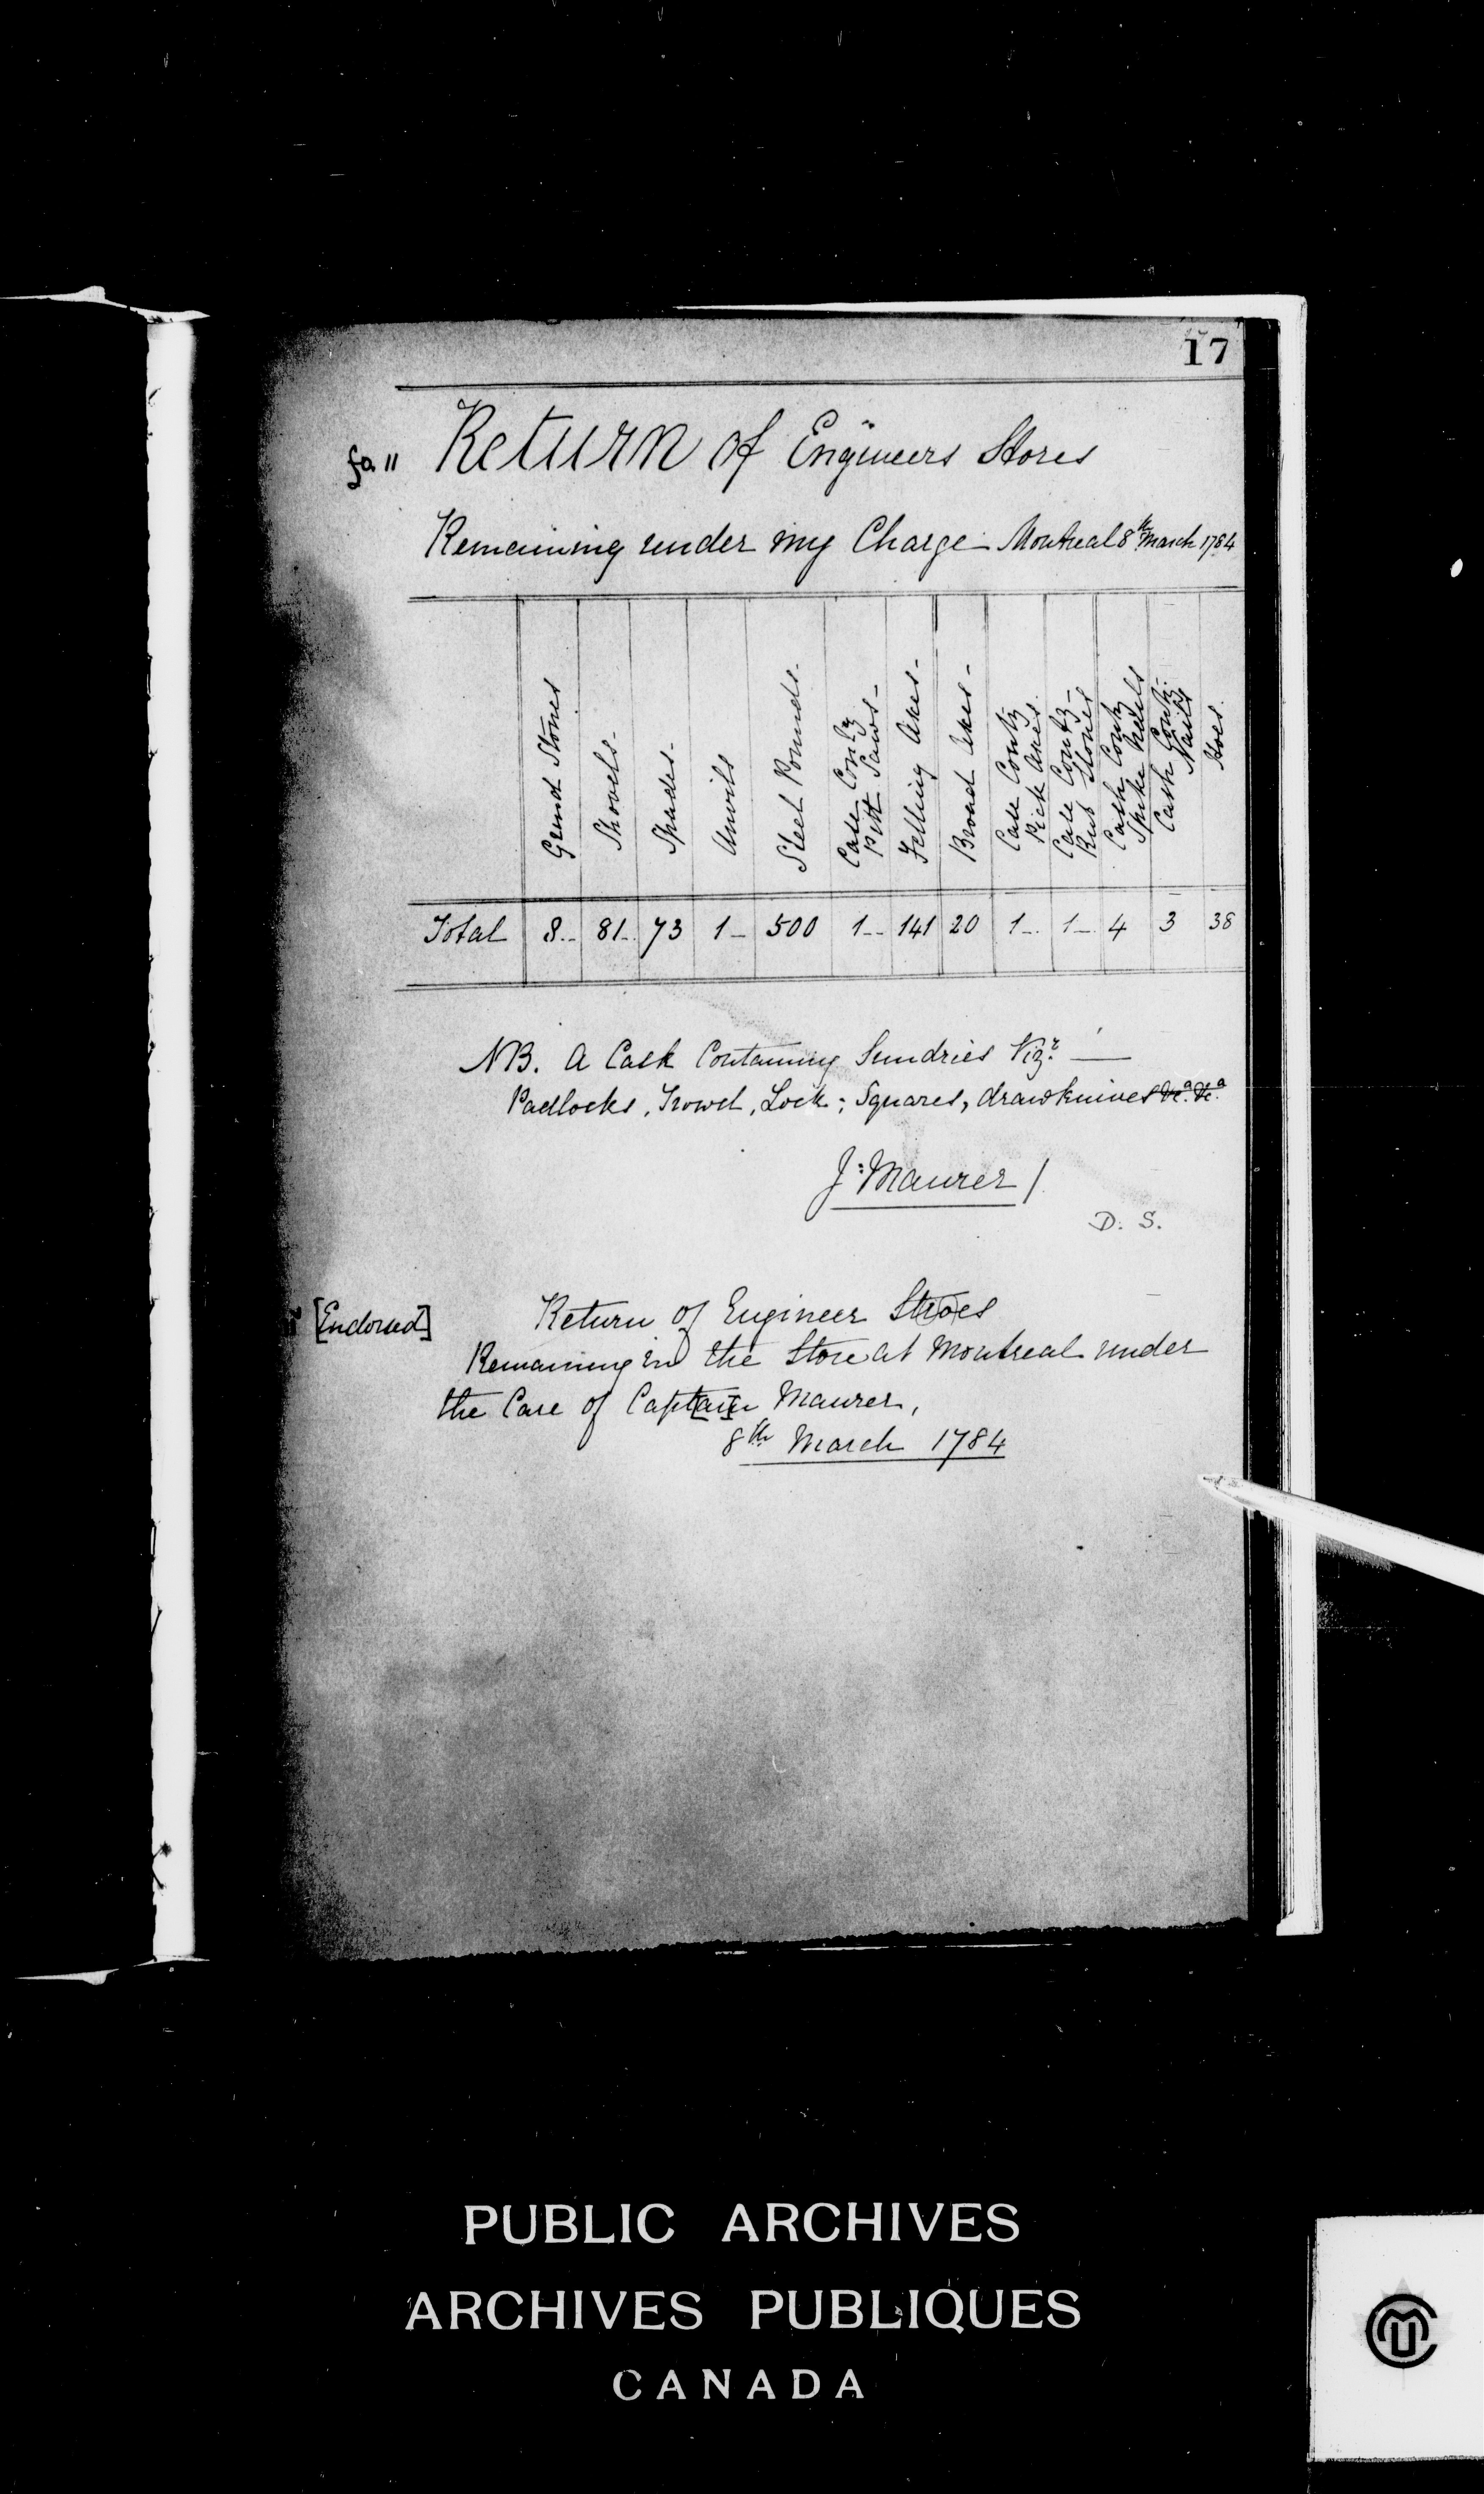 17
fo. 11
Return of Engineers Stores
Remaining under my Charge Montreal 8th March 1784
Grind Stones
Shovels-
Spades-
Anvils
Steel Pounds-
Case Contg
Pitt Saws-
Felling Axes-
Broad Axes-
Case Contg
Pick Axes
Case Contg-
Rub Stones
Cask Contg
Spike Nails
Cask Contg-
Nails
Hoes
Total 8-- 81- 73 1- 500 1-- 141 20 1-- 1- 4 3 38
NB. A Cask Containing Sundries Vizt. —
Padlocks, Trowel, Lock; Squares, drawknives &ca. &ca.
J: Maurer /
D. S.
[Endorsed]
Return of Engineer Stroes
Remaining in the Store at Montreal under
the Care of Capt[ai]n Maurer,
8th March 1784
PUBLIC ARCHIVES
ARCHIVES PUBLIQUES
CANADA